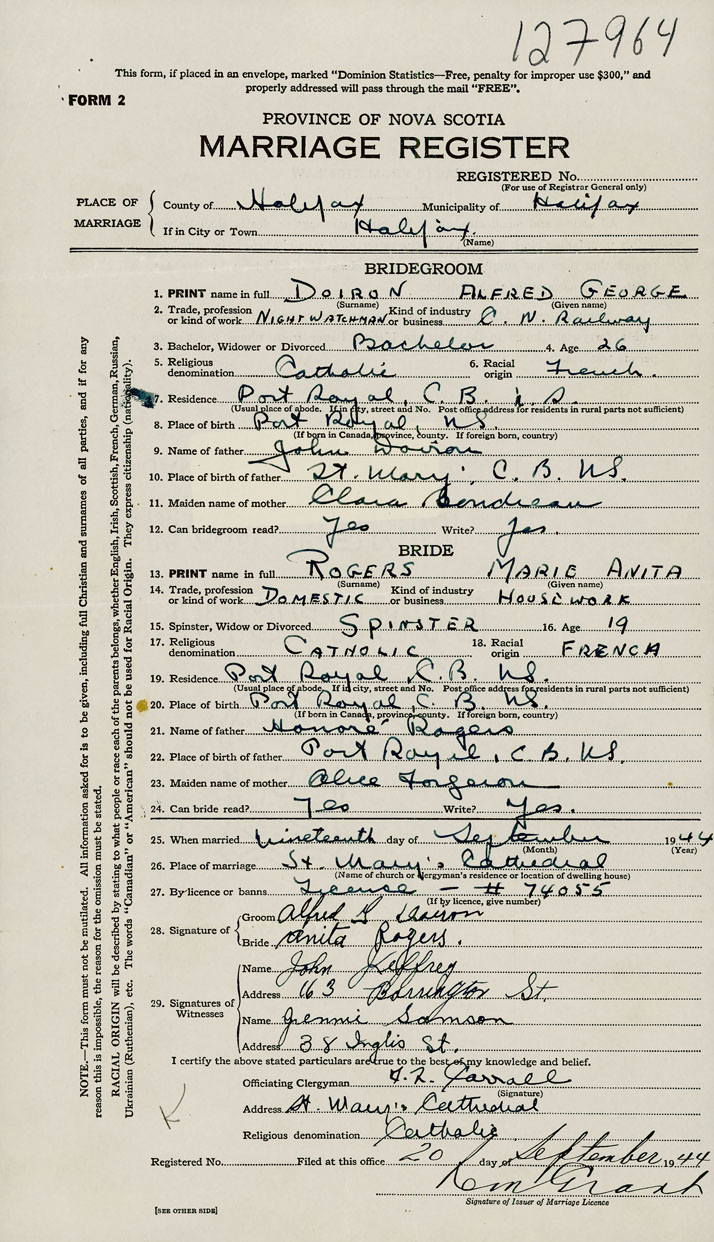 127964
This form, if placed in an envelope, marked "Dominion Statistics—Free, penalty for improper use $300," and
properly addressed will pass through the mail "FREE".
FORM 2
PROVINCE OF NOVA SCOTIA
MARRIAGE REGISTER
REGISTERED No.
(For use of Registrar General only)
PLACE OF MARRIAGE
County of Halifax Municipality of Halifax
If in City or Town Halifax.
(Name)
BRIDEGROOM
1. PRINT name in full DOIRON ALFRED GEORGE
(Surname) (Given name)
2. Trade, profession or kind of work NIGHTWATCHMAN Kind of industry or business C. N. Railway
3. Bachelor, Widower or Divorced Bachelor 4. Age 26
5. Religious denomination Catholic 6. Racial origin French.
7. Residence Port Royal, C. B. N. S.
(Usual place of abode. If in city, street and No. Post office address for residents in rural parts not sufficient)
8. Place of birth Port Royal, NS.
(If born in Canada, province, county. If foreign born, country)
9. Name of father John Doiron
10. Place of birth of father St. Mary', C. B. NS.
11. Maiden name of mother Clara Boudreau
12. Can bridegroom read? Yes Write? Yes.
BRIDE
13. PRINT name in full ROGERS MARIE ANITA
(Surname) (Given name)
14. Trade, profession or kind of work DOMESTIC Kind of industry or business HOUSEWORK
15. Spinster, Widow or Divorced SPINSTER 16. Age 19
17. Religious denomination CATHOLIC 18. Racial origin FRENCH
19. Residence Port Royal, C. B. NS.
(Usual place of abode. If in city, street and No. Post office address for residents in rural parts not sufficient)
20. Place of birth Port Royal C. B. NS.
(If born in Canada, province, county. If foreign born, country)
21. Name of father Honoré Rogers
22. Place of birth of father Port Royal, C B. NS.
23. Maiden name of mother Alice Forgeron
24. Can bride read? Yes Write? Yes.
25. When married Nineteenth day of September 1944
(Month) (Year)
26. Place of marriage St. Mary's Cathedral
(Name of church or clergyman's residence or location of dwelling house)
27. By licence or banns License — # 74055
(If by licence, give number)
28. Signature of
Groom Alfred G Doiron
Bride Anita Rogers.
29. Signatures of Witnesses
Name John Jeffrey
Address 163 Barrington St.
Name Jennie Samson
Address 38 Inglis St.
I certify the above stated particulars are true to the best of my knowledge and belief.
Officiating Clergyman Carroll
(Signature)
Address St. Mary's Cathedral
Religious denomination Catholic
Registered No. Filed at this office 20 day of September 1944
Grant
Signature of Issuer of Marriage Licence
[SEE OTHER SIDE]
NOTE.—This form must not be mutilated. All information asked for is to be given, including full Christian and surnames of all parties, and if for any
reason this is impossible, the reason for the omission must be stated.
RACIAL ORIGIN will be described by stating to what people or race each of the parents belongs, whether English, Irish, Scottish, French, German, Russian,
Ukrainian (Ruthenian), etc. The words "Canadian" or "American" should not be used for Racial Origin. They express citizenship (nationality).